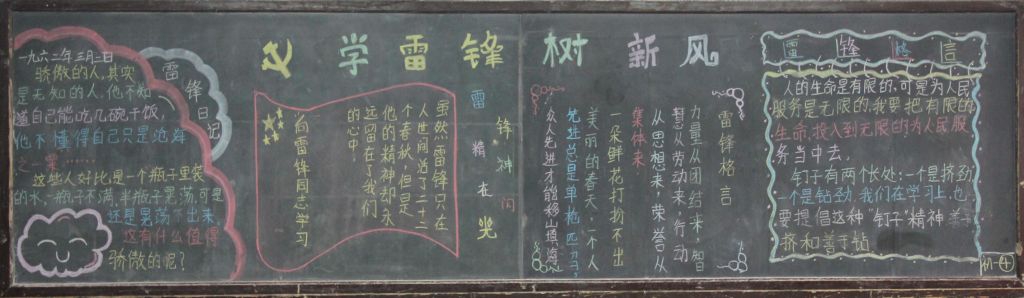 学雷锋 树新风
雷锋日记
一九六二年三月二日
骄傲的人,其实
是无知的人,他不知
道自己能吃几碗干饭,
他不懂得自己只是沧海
之一粟……
这些人好比是一个瓶子里装
的水,一瓶子不满,半瓶子晃荡,可是
还是晃荡不出来,
这有什么值得
骄傲的呢?
虽然雷锋只在
人世间活了二十二
个春秋,但是
他的精神却永
远留在了我们
的心中。
向雷锋同志学习
雷锋精神在闪光
雷锋格言
力量从团结来,智
慧从劳动来,行动
从思想来,荣誉从
集体来。
一朵鲜花打扮不出
美丽的春天,一个人
先进总是单枪匹马,
众人先进才能移山填海。
雷锋格言
人的生命是有限的,可是为人民
服务是无限的,我要把有限的
生命投入到无限的为人民服
务当中去。
钉子有两个长处:一个是挤劲
一个是钻劲,我们在学习上,也
要提倡这种“钉子”精神善于
挤和善于钻
初④